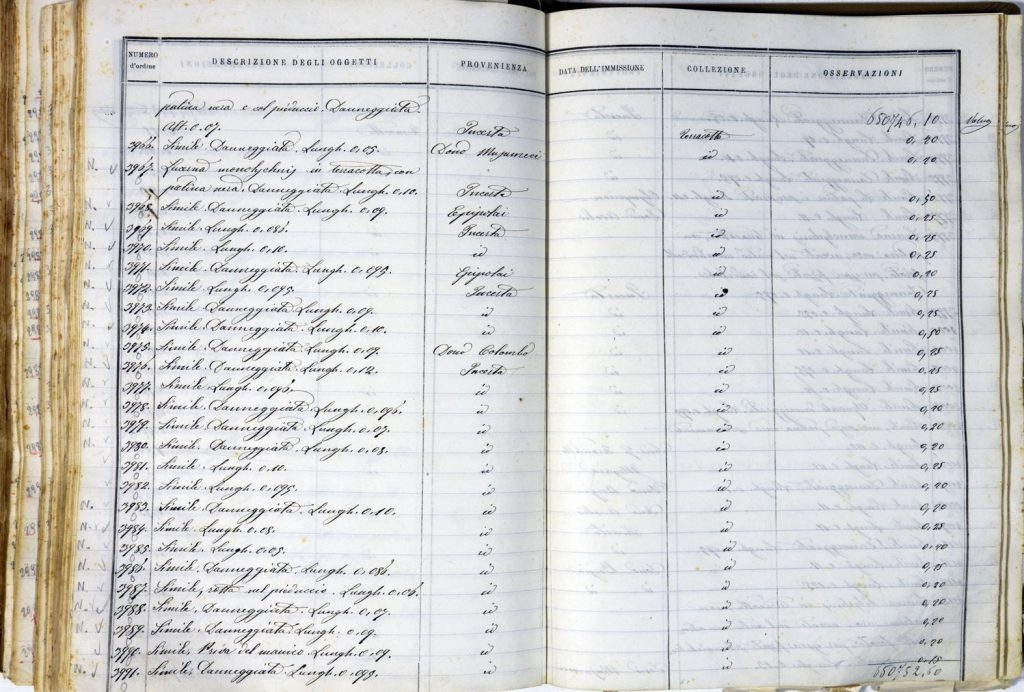 NUMERO d'ordine DESCRIZIONE DEGLI OGGETTI PROVENIENZA DATA DELL'IMMISSIONE COLLEZIONE OSSERVAZIONI
patina nera e col piduccio. Danneggiata 650746,10 Valore
Alt. 0.07. Incerta terracotta 0,20
3966. Simile. Danneggiata. Lungh. 0,05. Dono id 0,20
N. 3967. Lucerna monolychnis in terracotta con
patina nera. Danneggiata. Lungh. 0,10. Incerta id 0,50
3968. Simile. Danneggiata. Lungh. 0,09. Epipolai id 0,25
3969. Simile. Lungh. 0,086. Incerta id 0,25
3970. Simile. Lungh. 0,10. id id 0,25
3971. Simile. Danneggiata. Lungh. 0,095. Epipolai id 0,20
3972. Simile. Lungh. 0,095. Incerta id 0,25
3973. Simile. Danneggiata. Lungh. 0,09. id id
3974. Simile. Danneggiata. Lungh. 0,10. id id
3975. Simile. Danneggiata. Lungh. 0,09. Dono Colombo id 0,25
3976. Simile. Danneggiata. Lungh. 0,12. Incerta id 0,25
3977. Simile. Lungh. 0,096. id id 0,25
3978. Simile. Danneggiata. Lungh. 0,096. id id 0,20
3979. Simile. Danneggiata. Lungh. 0,07. id id 0,20
3980. Simile. Danneggiata. Lungh. 0,08. id id 0,20
3981. Simile. Lungh. 0,10. id id 0,25
3982. Simile. Lungh. 0,095. id id 0,20
N. 3983. Simile. Danneggiata. Lungh. 0,10. id id 0,20
N. 3984. Simile. Lungh. 0,08. id id 0,25
N. 3985. Simile. Lungh. 0,05. id id
N. 3986. Simile. Danneggiata. Lungh. 0,086. id id
N. 3987. Simile, rotta nel piduccio. Lungh. 0,06. id id 0,20
N. 3988. Simile, Danneggiata. Lungh. 0,07. id id 0,20
N. 3989. Simile. Danneggiata. Lungh. 0,09. id id 0,20
N. 3990. Simile, Priva del manico. Lungh. 0,09. id id 0,20
N. 3991. Simile, Danneggiata. Lungh. 0,099. id id 0,15
650752,60